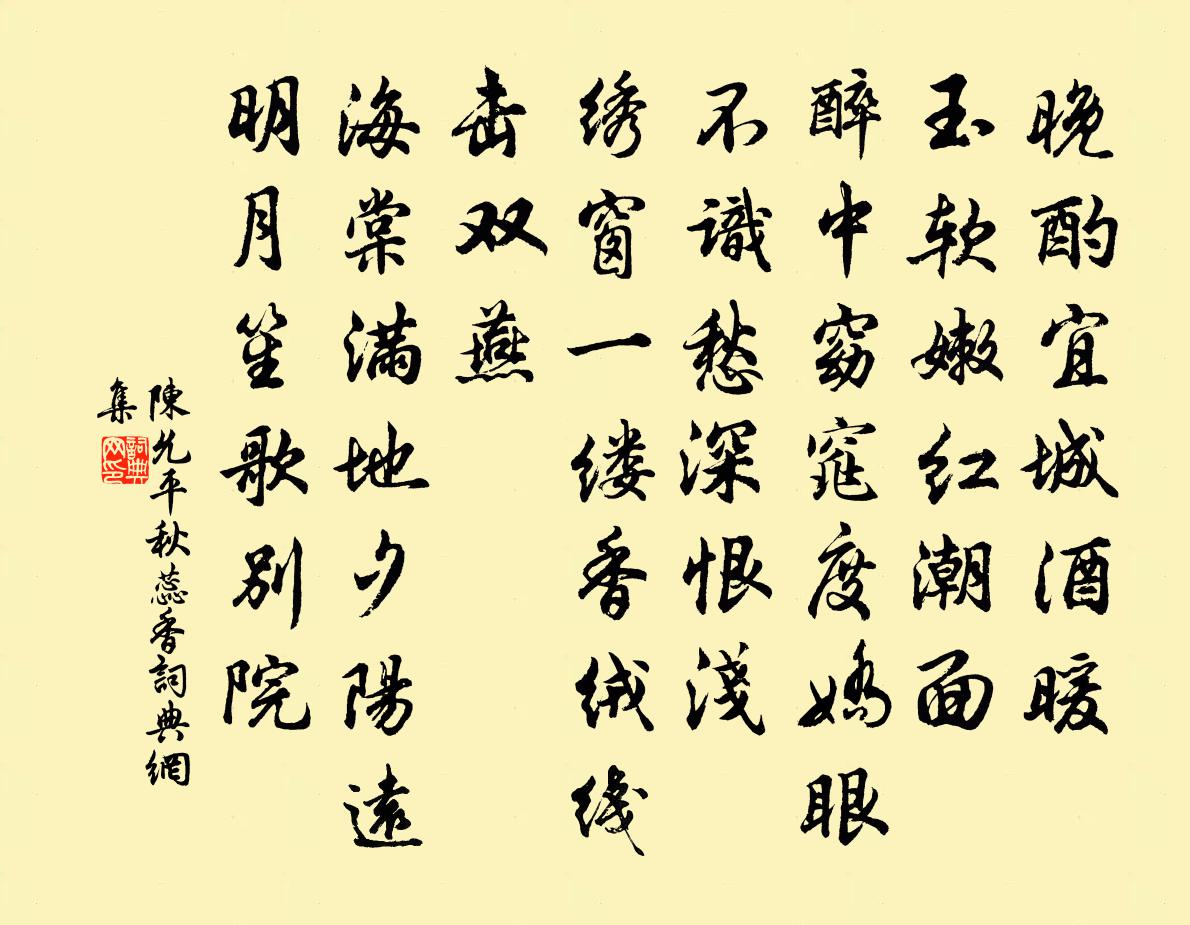 晚酌宜城酒暖
玉软嫩红潮面
醉中窈窕度娇眼
不識愁深恨淺
绣窗一缕香绒线
击双燕
海棠满地夕陽遠
明月笙歌别院
陳允平秋蕊香詞典網
集
詞典网印